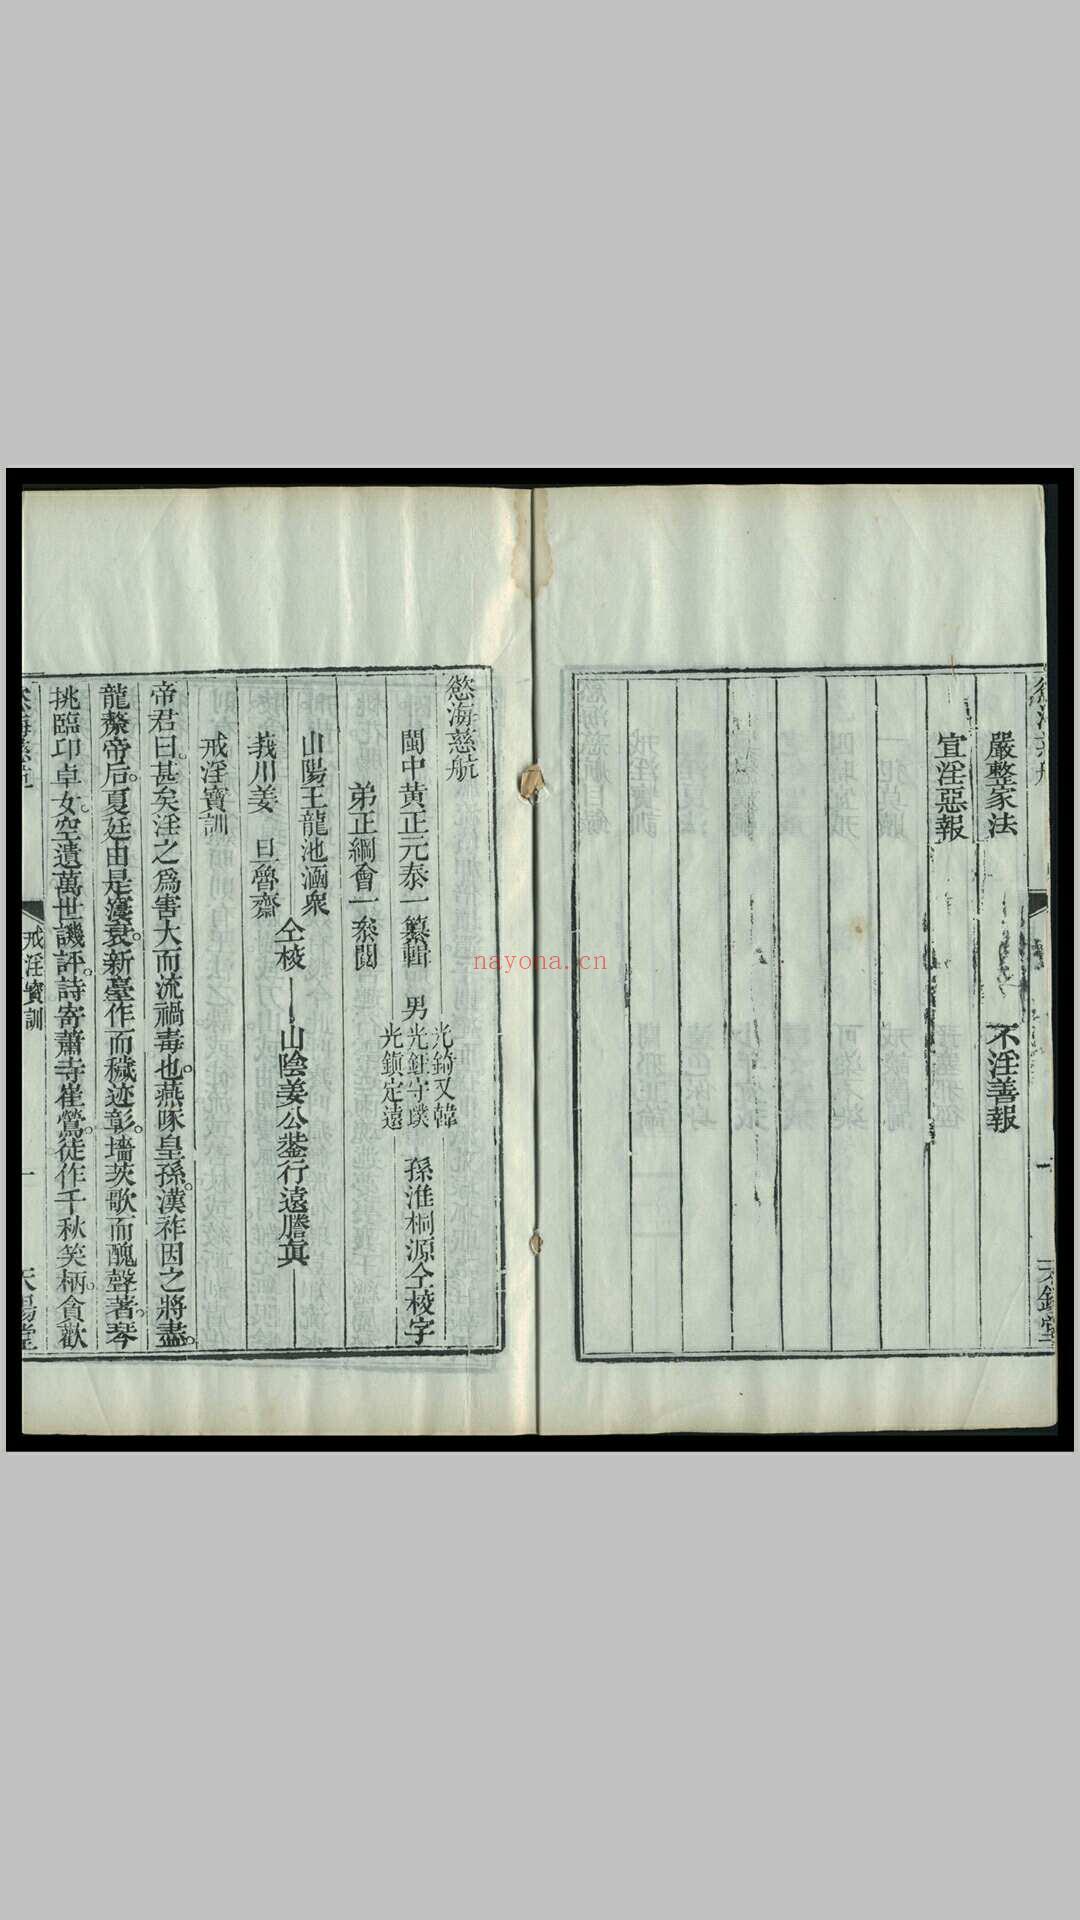 嚴整家法　不淫善報
宣淫惡報
慾海慈航
閩中黃正元泰一纂輯　男
光錡又韓
光鈺守璞
光鎮定遠
孫淮桐源仝校字
弟正綱會一叅閱
山陽王龍池涵衆
莪川姜　旦魯齋
仝校　山陰姜公鋆行遠謄真
戒淫寶訓
帝君曰。甚矣淫之爲害大而流禍毒也。燕啄皇孫。漢祚因之將盡。
龍漦帝后。夏廷由是寖衰。新臺作而穢迹彰。墻茨歌而醜聲著。琴
挑臨卭卓女。空遺萬世譏評。詩寄蕭寺崔鶯。徒作千秋笑柄。貪歡
戒淫寶訓　一
nayona.cn